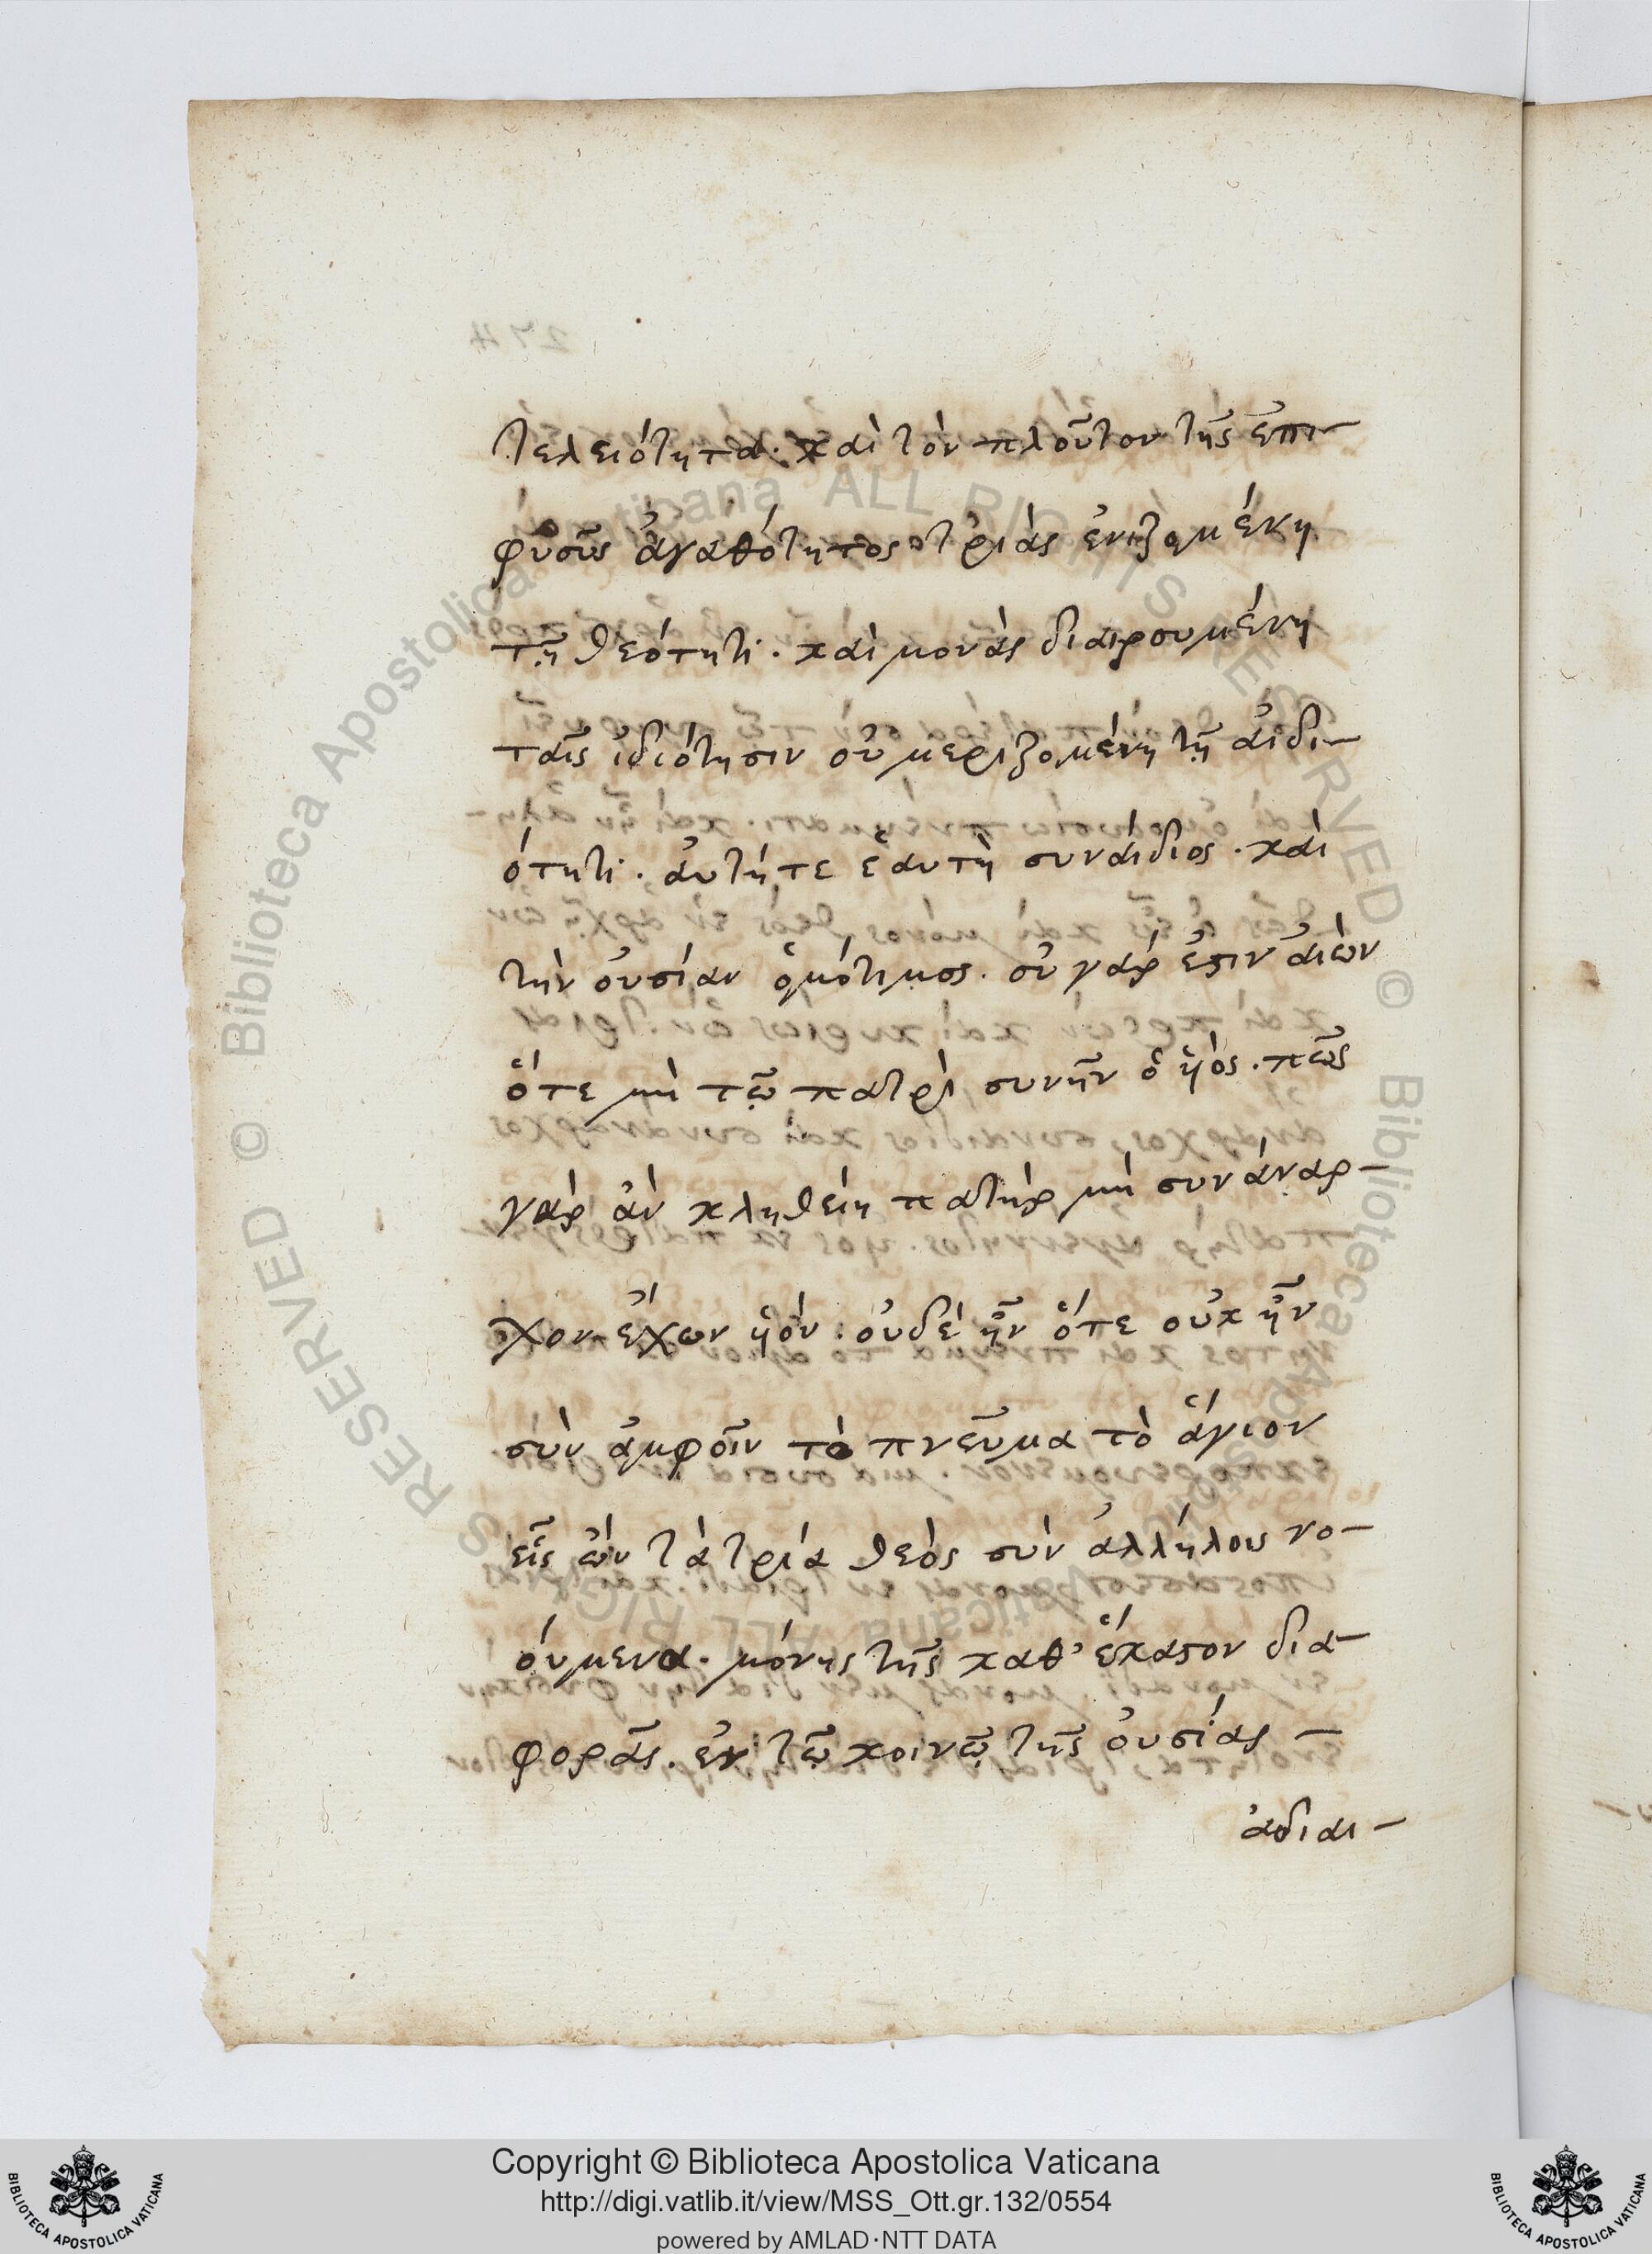 τελειότητα. καὶ τὸν πλοῦτον τῆς ἐπι-
φυοῦς ἀγαθότητος τριὰς ἑνιζομένη
τῇ θεότητι. καὶ μονὰς διαιρουμένη
ταῖς ἰδιότησιν οὐ μεριζομένη τῇ ἀϊδι-
ότητι. ἀυτή τε ἑαυτῇ συναΐδιος. καὶ
τὴν οὐσίαν ὁμότιμος. οὐ γάρ ἐστιν αἰὼν
ὅτε μὴ τῷ πατρὶ συνῆν ὁ ὑιὸς. πῶς
γὰρ ἀν κληθείη πατὴρ μὴ συνάναρ-
χον ἔχων ὑιόν. οὐδὲ ἦν ὅτε οὐκ ἦν
σὺν ἀμφοῖν τὸ πνεῦμα τὸ ἅγιον
εἷς ὢν τὰ τρία θεὸς σὺν ἀλλήλοις νο-
ούμενα. μόνης τῆς καθ' ἕκαστον δια-
φορᾶς. ἐν τῷ κοινῷ τῆς οὐσίας -
ἀδιαι-
Copyright © Biblioteca Apostolica Vaticana
http://digi.vatlib.it/view/MSS_Ott.gr.132/0554
powered by AMLAD·NTT DATA
BIBLIOTECA APOSTOLICA VATICANA
BIBLIOTECA APOSTOLICA VATICANA